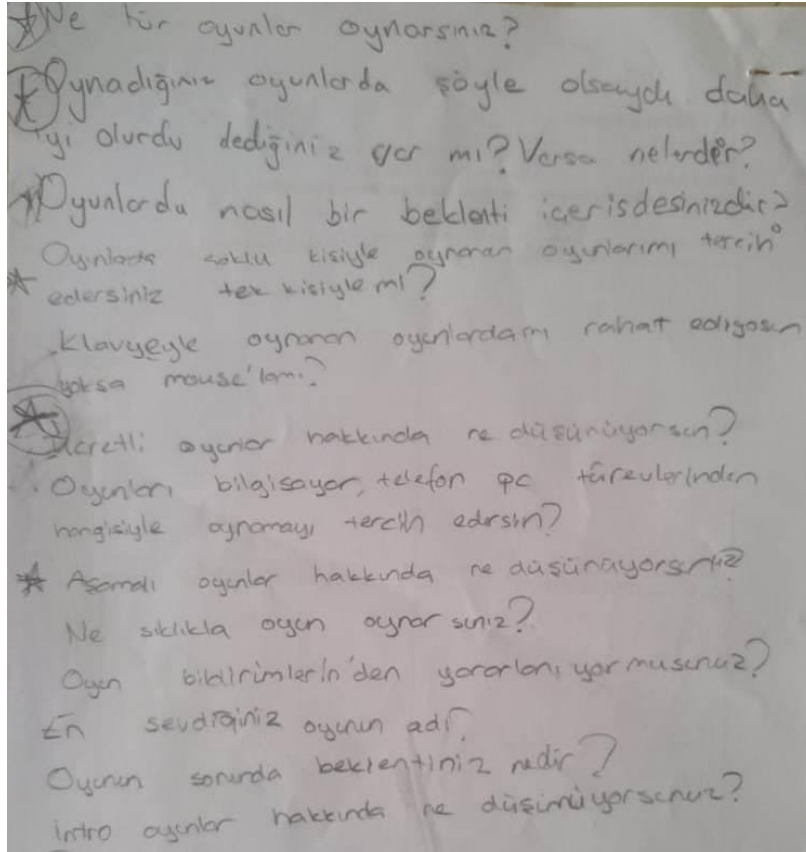 Ne tür oyunlar oynarsınız?
Oynadığınız oyunlarda şöyle olsaydı daha
iyi olurdu dediğiniz var mı? Varsa nelerdir?
Oyunlarda nasıl bir beklenti içerisdesinizdir?
Oyunlarda çoklu kişiyle oynanan oyunlarımı tercih
edersiniz tek kişiyle mi?
Klavyeyle oynanan oyunlardamı rahat ediyosun
yoksa mouse'lamı?
Ücretli oyunlar hakkında ne düşünüyorsun?
Oyunları bilgisayar, telefon pc türevlerinden
hangisiyle oynamayı tercih edersin?
Aşamalı oyunlar hakkında ne düşünüyorsunuz?
Ne sıklıkla oyun oynarsınız?
Oyun bildirimlerin'den yararlanıyormusunuz?
En sevdiğiniz oyunun adı?
Oyunun sonunda beklentiniz nedir?
intro oyunlar hakkında ne düşünüyorsunuz?